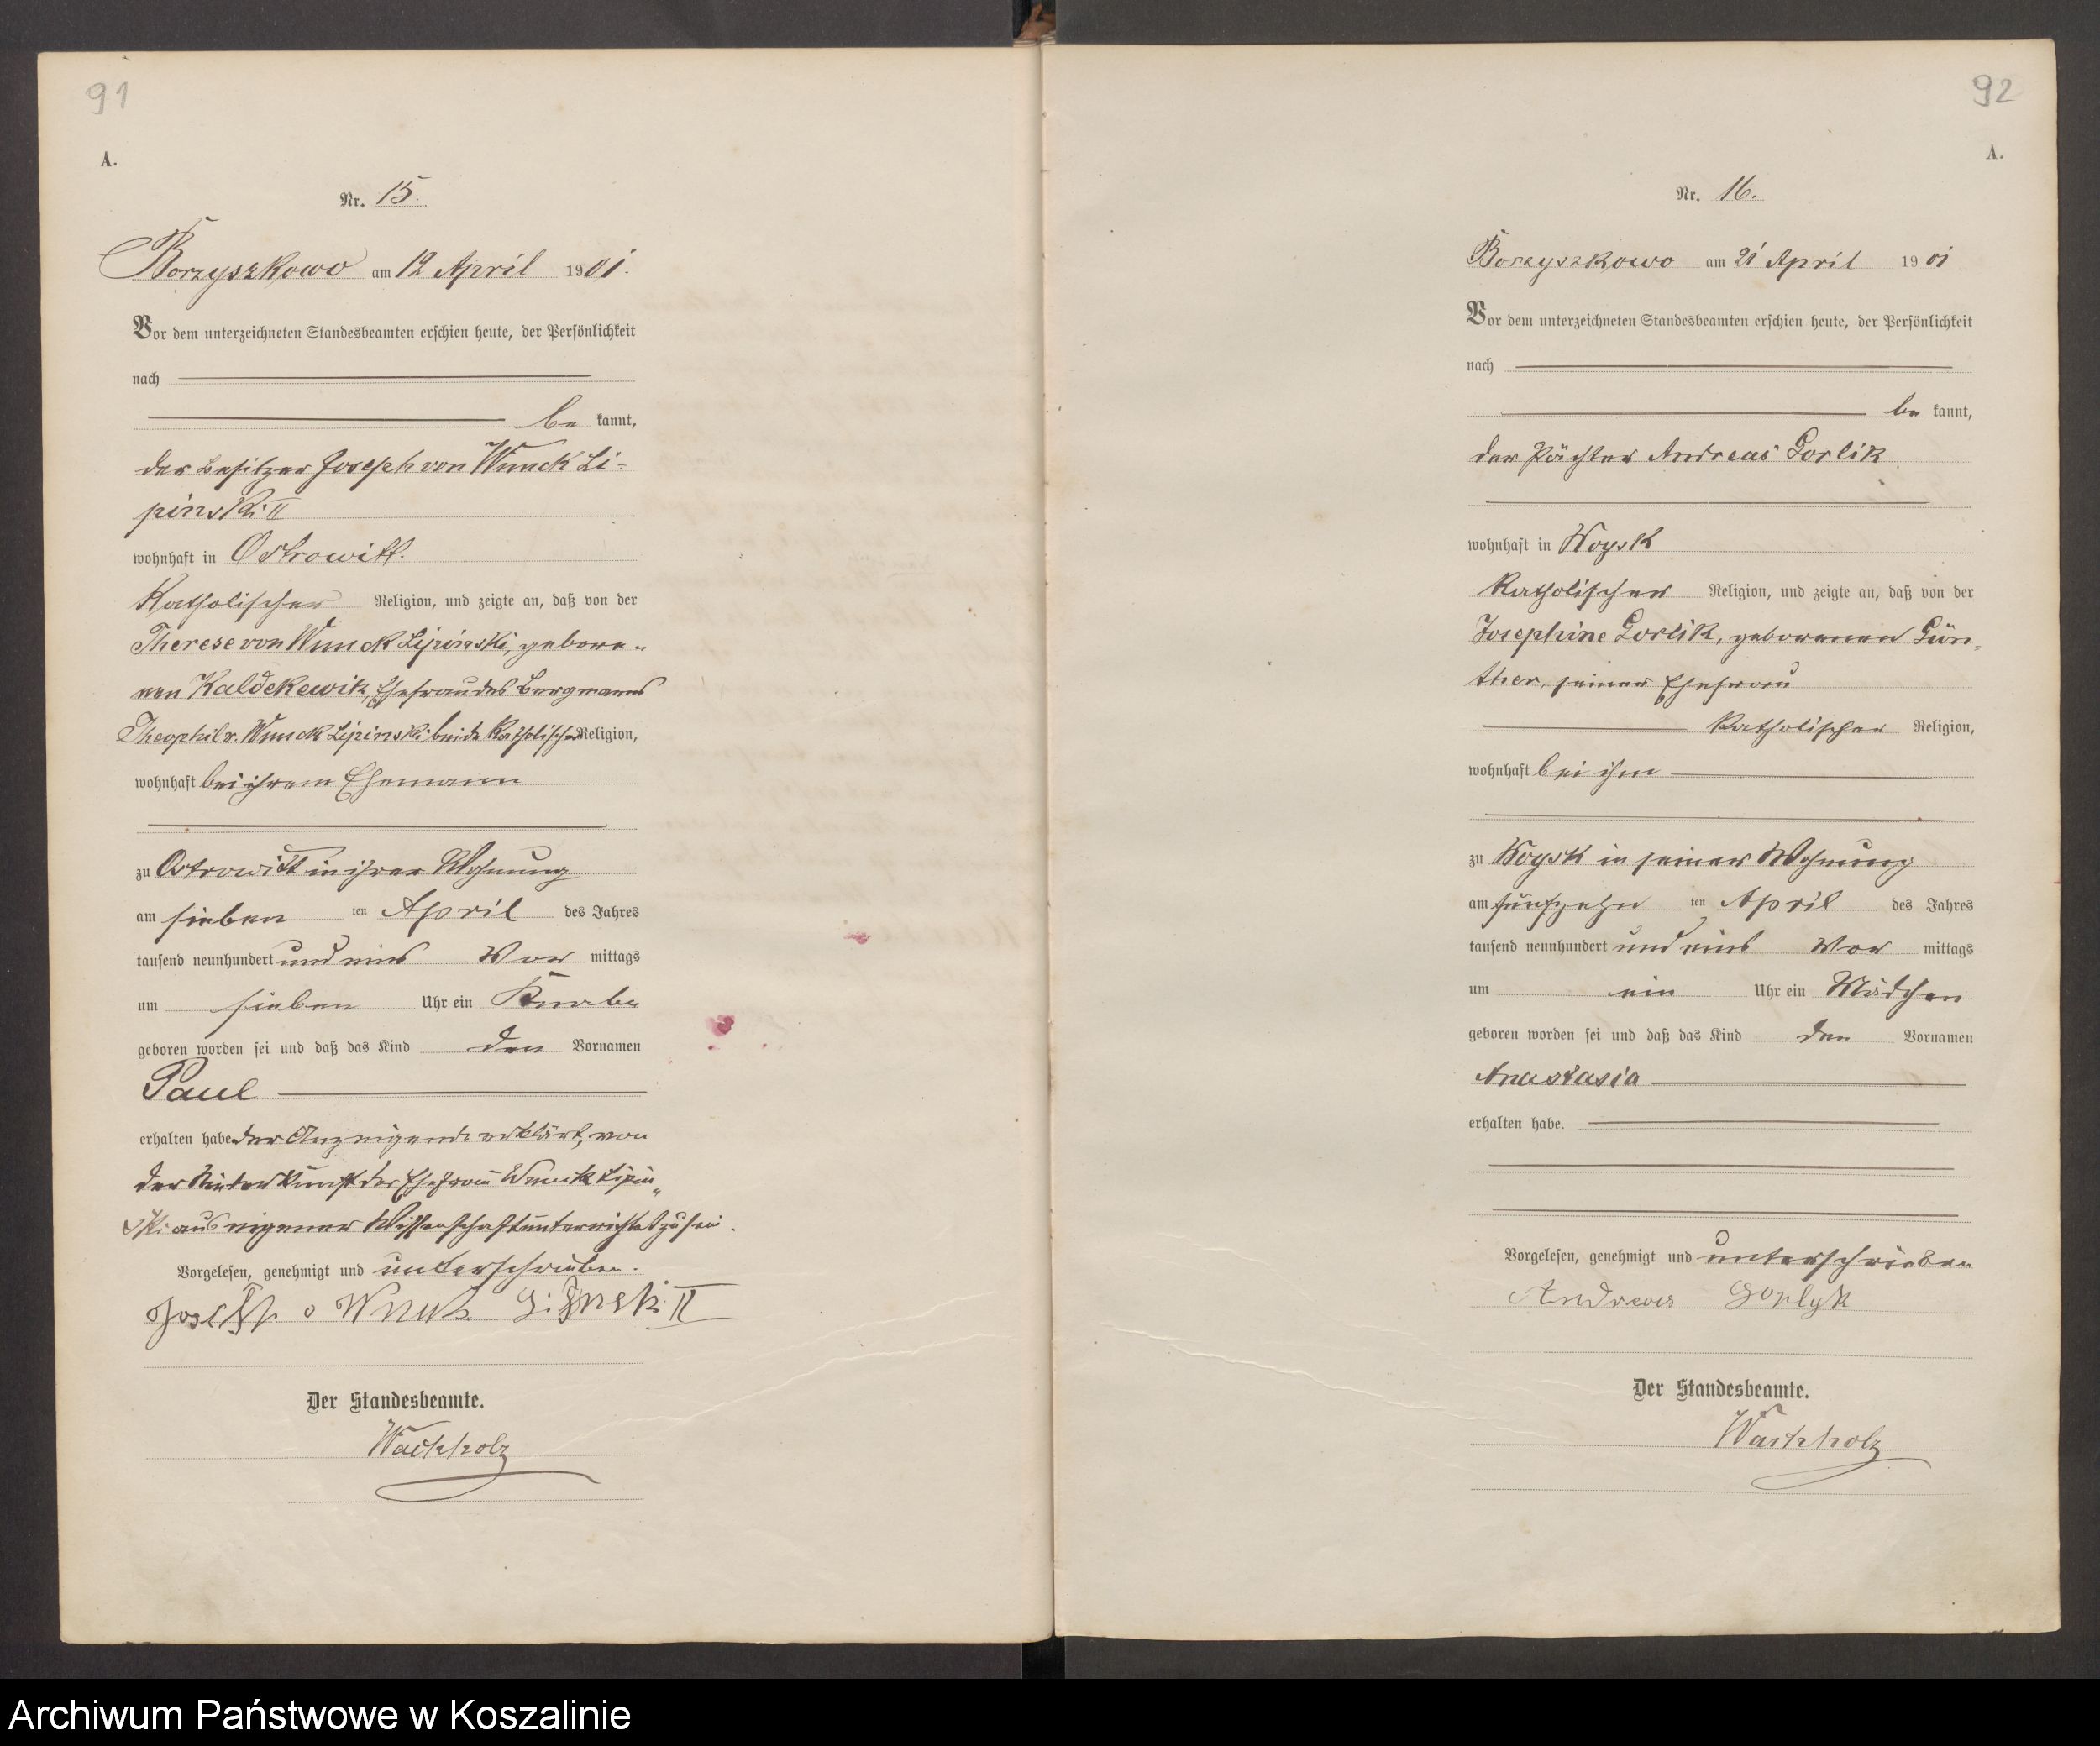 91
A.
Nr. 15.
Borzyszkowo am 12 April 1901.
Vor dem unterzeichneten Standesbeamten erschien heute, der Persönlichkeit
nach
be kannt,
der Besitzer Joseph von Wnuck Li-
pinski II
wohnhaft in Ostrowitt.
Katholischer Religion, und zeigte an, daß von der
Therese von Wnuck Lipinski, gebore-
nen Kaldekewik, Ehefrau des Bergmanns
Theophil v. Wnuck Lipinski beide Katholischer Religion,
wohnhaft bei ihrem Ehemann
zu Ostrowitt in ihrer Wohnung
am sieben ten April des Jahres
tausend neunhundert und eins Vor mittags
um sieben Uhr ein Knabe
geboren worden sei und daß das Kind den Vornamen
Paul
erhalten habe der Anzeigende erklärt, von
der Niederkunft der Ehefrau Wnuck Lipin-
ski aus eigener Wissenschaft unterrichtet zu sein.
Vorgelesen, genehmigt und unterschrieben.
Joseph v Wnuk Lipinski II
Der Standesbeamte.
Wachholz
92
A.
Nr. 16.
Borzyszkowo am 21 April 1901
Vor dem unterzeichneten Standesbeamten erschien heute, der Persönlichkeit
nach
be kannt,
der Pächter Andreas Gorlik
wohnhaft in Woysk
Katholischer Religion, und zeigte an, daß von der
Josephine Gorlik, geborenen Gün-
ther, seiner Ehefrau
Katholischer Religion,
wohnhaft bei ihm
zu Woysk in seiner Wohnung
am fünfzehn ten April des Jahres
tausend neunhundert und eins Vor mittags
um ein Uhr ein Mädchen
geboren worden sei und daß das Kind den Vornamen
Anastasia
erhalten habe.
Vorgelesen, genehmigt und unterschrieben
Andreas Gorlyk
Der Standesbeamte.
Wachholz
Archiwum Państwowe w Koszalinie